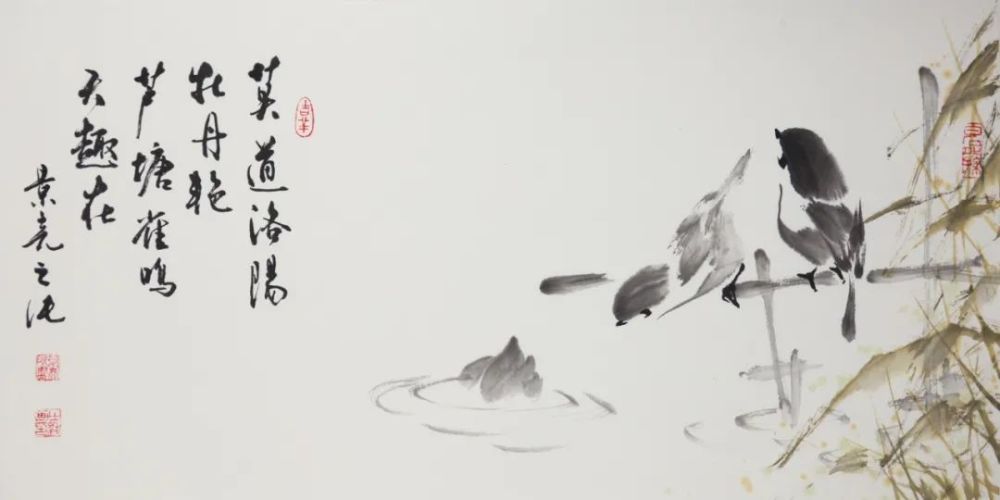 莫道洛陽
牡丹艳
芦塘雀鳴
天趣在
景尧之